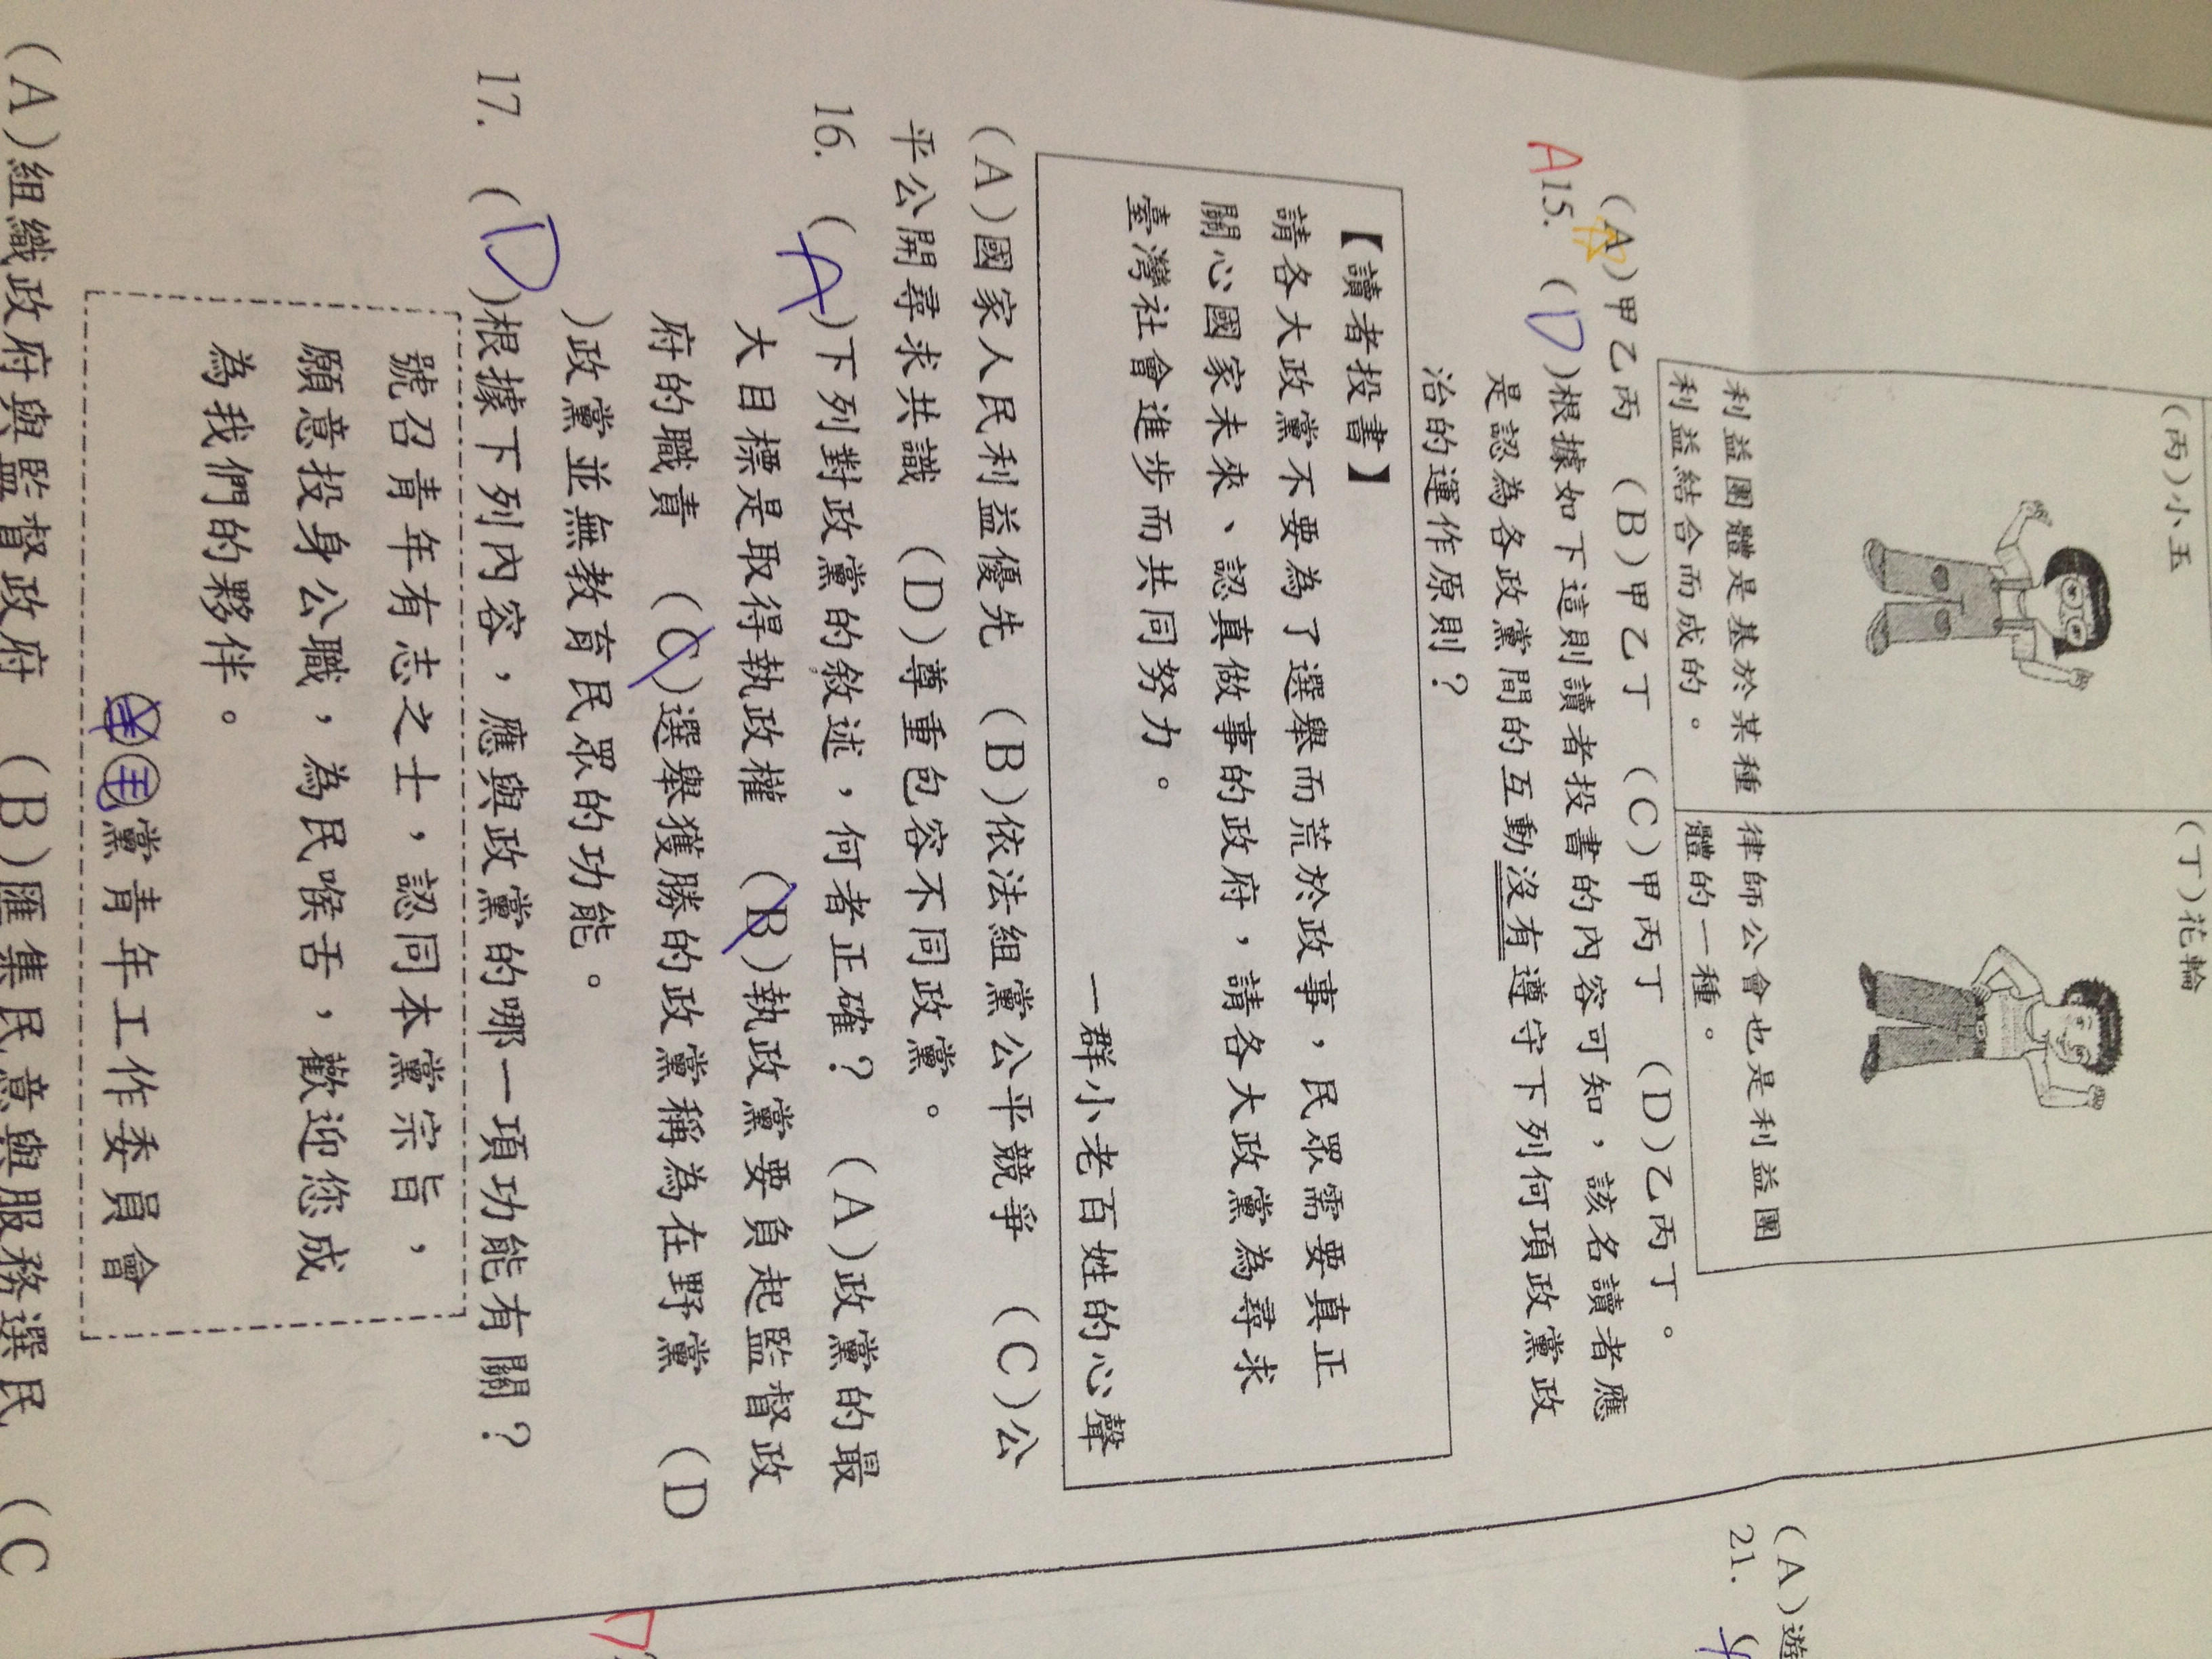 (丙)小玉
(丁)花輪
利益團體是基於某種
利益結合而成的。
律師公會也是利益團
體的一種。
(A)甲乙丙 (B)甲乙丁 (C)甲丙丁 (D)乙丙丁。
A15. (D)根據如下這則讀者投書的內容可知，該名讀者應
是認為各政黨間的互動沒有遵守下列何項政黨政
治的運作原則？
【讀者投書】
請各大政黨不要為了選舉而荒於政事，民眾需要真正
關心國家未來、認真做事的政府，請各大政黨為尋求
臺灣社會進步而共同努力。
一群小老百姓的心聲
(A)國家人民利益優先 (B)依法組黨公平競爭 (C)公
平公開尋求共識 (D)尊重包容不同政黨。
16. (A)下列對政黨的敘述，何者正確？ (A)政黨的最
大目標是取得執政權 (B)執政黨要負起監督政
府的職責 (C)選舉獲勝的政黨稱為在野黨 (D
)政黨並無教育民眾的功能。
17. (D)根據下列內容，應與政黨的哪一項功能有關？
號召青年有志之士，認同本黨宗旨，
願意投身公職，為民喉舌，歡迎您成
為我們的夥伴。
黨青年工作委員會
(A)組織政府與監督政府 (B)匯集民意與服務選民 (C
(A)遊
21. (